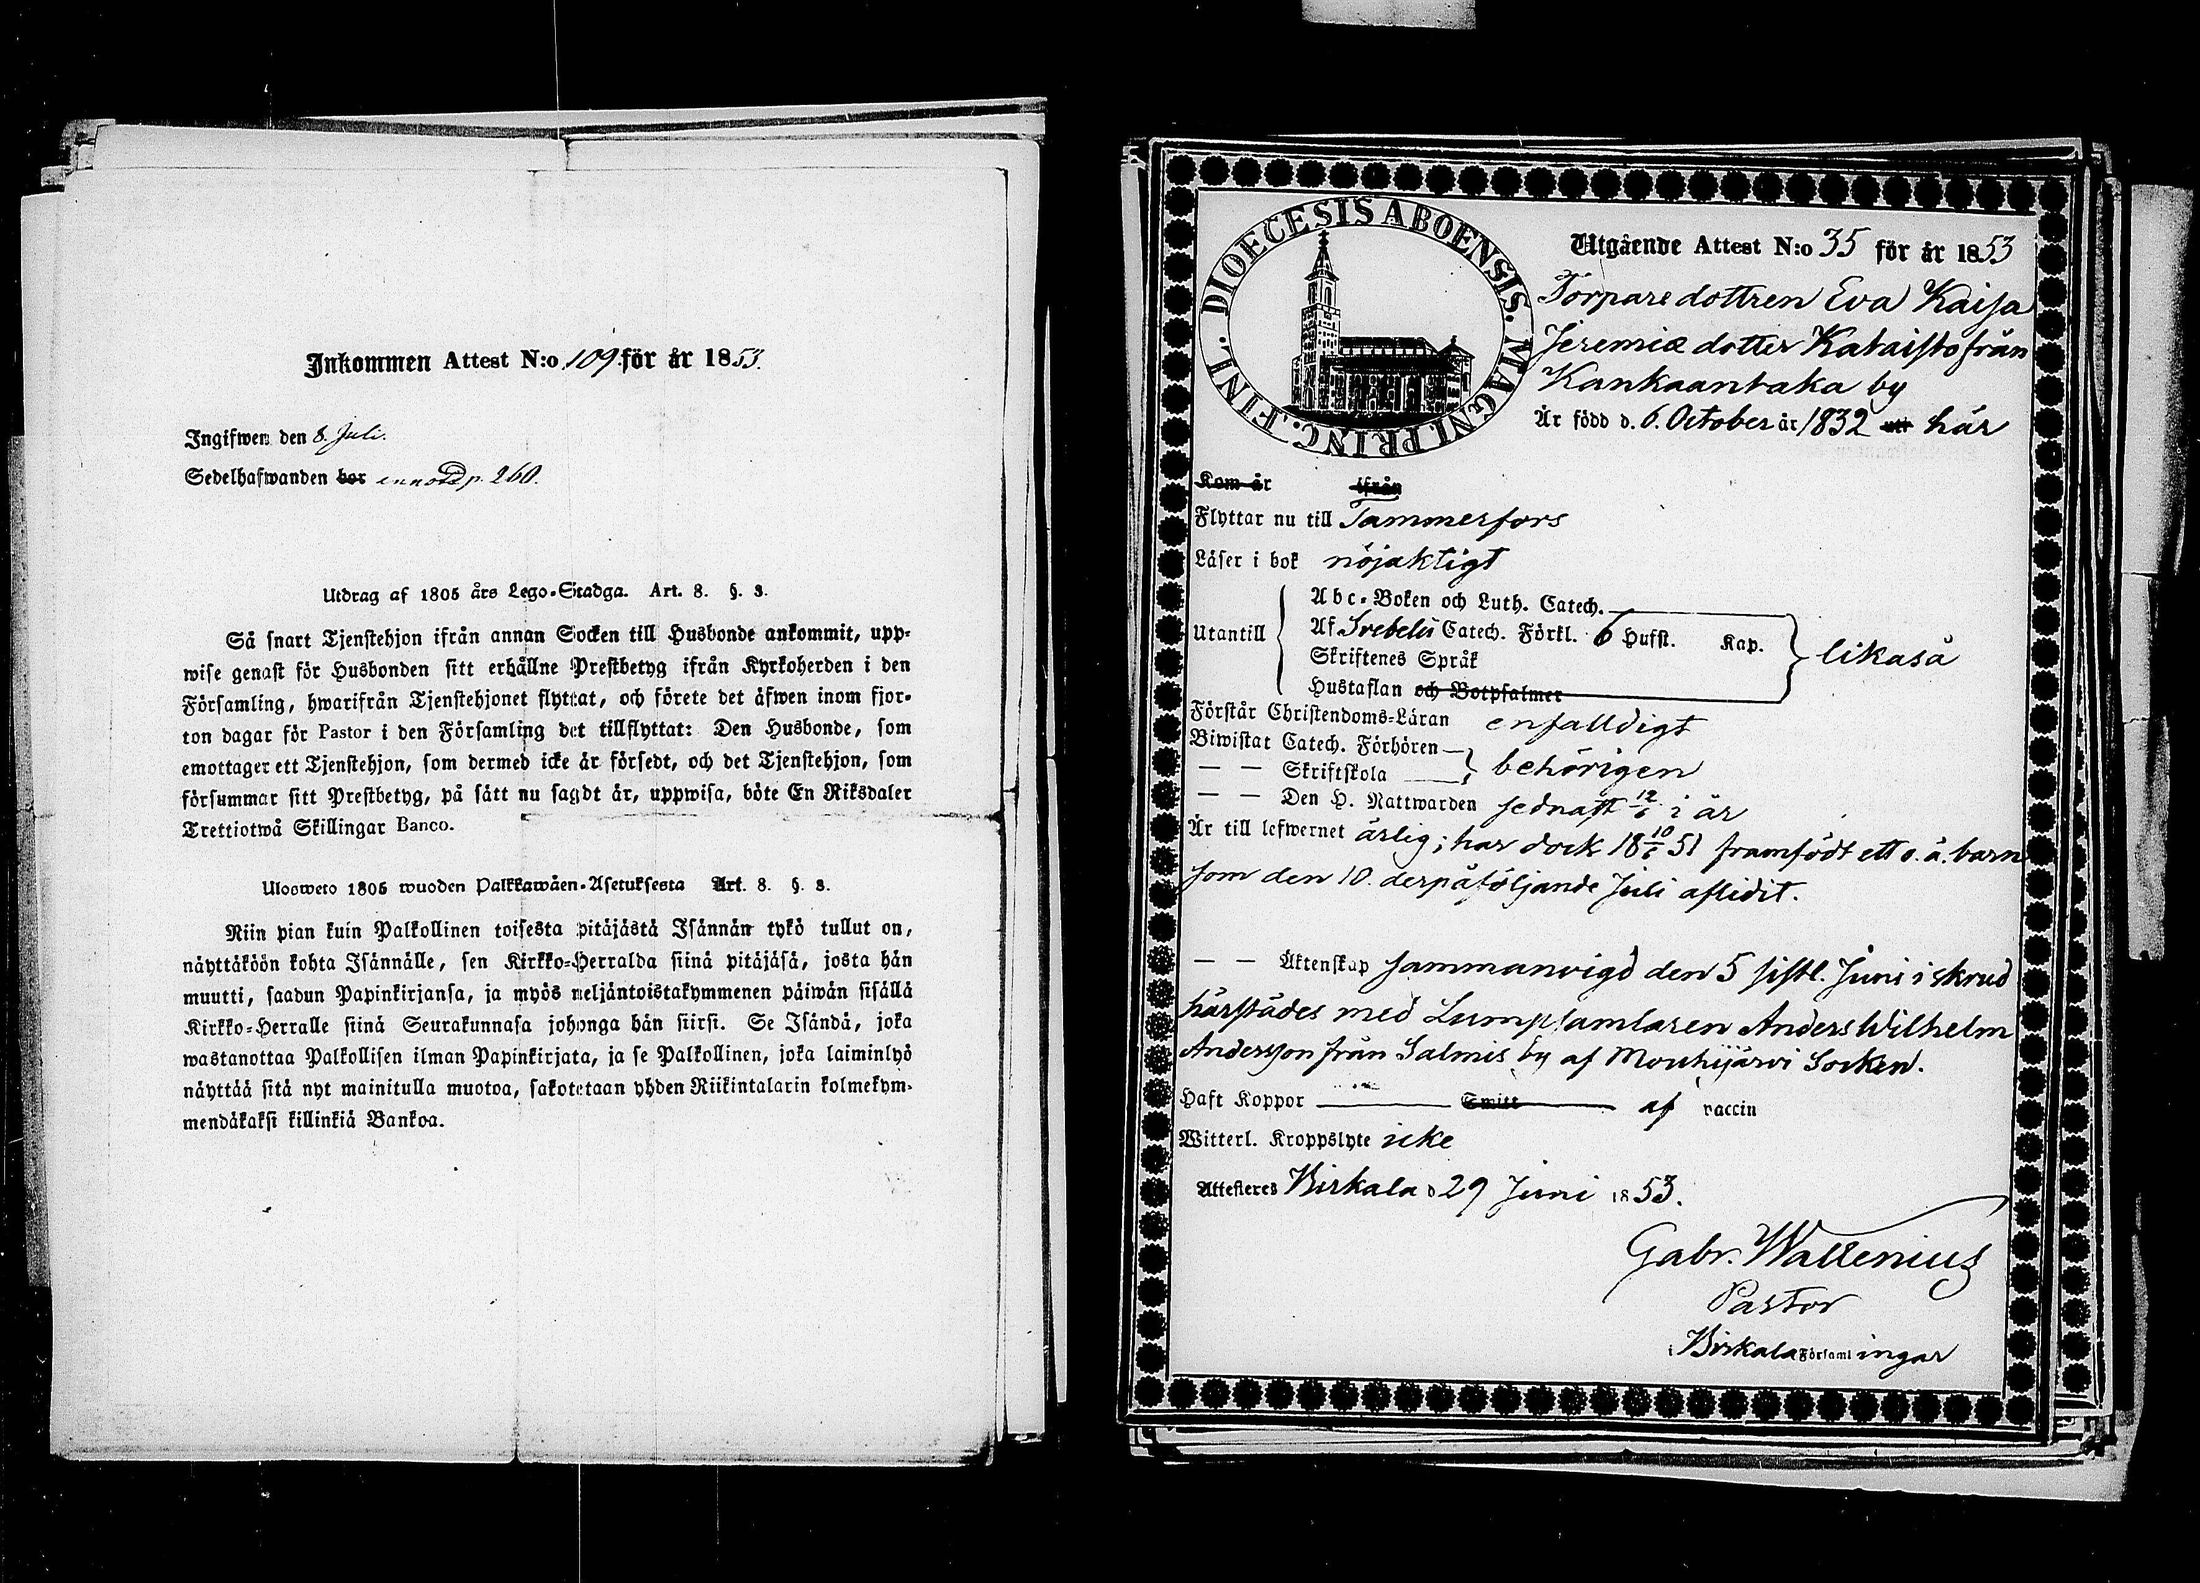 Inkommen Attest N:o 109. för år 1853.
Ingifwen den 8. Juli.
Sedelhafwanden bor p. 260.
Utdrag af 1805 års Lego-Stadga. Art. 8. §. 3.
Så snart Tjenstehjon ifrån annan Socken till Husbonde ankommit, upp-
wise genast för Husbonden sitt erhållne Prestbetyg ifrån Kyrkoherden i den
Församling, hwarifrån Tjenstehjonet flyttat, och förete det äfwen inom fjor-
ton dagar för Pastor i den Församling det tillflyttat: Den Husbonde, som
emottager ett Tjenstehjon, som dermed icke är försedt, och det Tjenstehjon, som
försummar sitt Prestbetyg, på sätt nu sagdt är, uppwisa, böte En Riksdaler
Trettiotwå Skillingar Banco.
Ulosweto 1805 wuoden Palkkawäen-Asetuksesta Art. 8. §. 3.
Niin pian kuin Palkollinen toisesta pitäjästä Isännän tykö tullut on,
näyttäköön kohta Isännälle, sen Kirkko-Herralda siinä pitäjäsä, josta hän
muutti, saadun Papinkirjansa, ja myös neljäntoistakymmenen päiwän sisällä
Kirkko-Herralle siinä Seurakunnasa johonga hän siirsi. Se Isändä, joka
wastanottaa Palkollisen ilman Papinkirjata, ja se Palkollinen, joka laiminlyö
näyttää sitä nyt mainitulla muotoa, sakotetaan yhden Riikintalarin kolmekym-
mendäkaksi killinkiä Bankoa.
DIOECESIS ABOENSIS. MAGNI PRINC. FINL.
Utgående Attest N:o 35 för år 1853
Torpare dottren Eva Kaisa
Jeremiæ dotter Kataisto från
Kankaantaka by
Är född d. 6. October år 1832 uti här
Kom år ifrån
Flyttar nu till Tammerfors
Läser i bok nöjaktigt
Utantill
Abc-Boken och Luth. Catech.
Af Svebelii Catech. Förkl. 6 Hufst. Kap.
Skriftenes Språk
Hustaflan och Botpsalmer
likaså
Förstår Christendoms-Läran enfalldigt
Biwistat Catech. Förhören
— — Skriftskola
behörigen
— — Den H. Nattwarden sednast 12/6 i år
Är till lefwernet ärlig; har dock 18 10/6 51 framfödt ett o. ä. barn
som den 10. derpåföljande Juli aflidit.
— — Äktenskap sammanvigd den 5 sistl. Juni i skrud
härstädes med Lumpsamlaren Anders Wilhelm
Andersson från Salmis by af Mouhijärvi Socken.
Haft Koppor Smitt af vaccin
Witterl. Kroppslyte icke
Attesteres Birkala d 29 Juni 1853.
Gabr. Wallenius
Pastor
i Birkala Församlingar